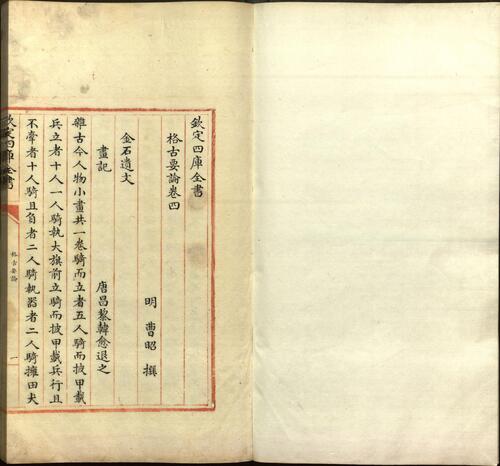 欽定四庫全書
格古要論卷四
明 曹昭 撰
金石遺文
畫記 唐昌黎韓愈退之
雜古今人物小畫共一卷騎而立者五人騎而披甲載
兵立者十人一人騎執大旗前立騎而披甲載兵行且
不牽者十人騎且負者二人騎執器者二人騎擁田犬
欽定四庫全書
格古要論
一